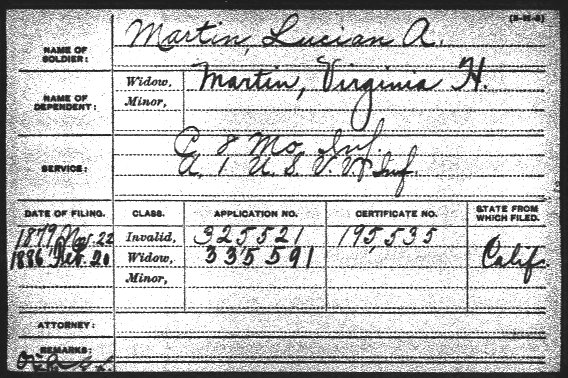 (3-11-6)
NAME OF SOLDIER: Martin, Lucian A.
NAME OF DEPENDENT: Widow, Martin, Virginia H.
Minor,
SERVICE: C 8 Mo. Inf.
A. 1 U. S. V. V. Inf.
DATE OF FILING. CLASS. APPLICATION NO. CERTIFICATE NO. STATE FROM WHICH FILED.
1879 Nov. 22 Invalid, 325521 195,535
1886 Feb. 20 Widow, 335591 Calif.
Minor,
ATTORNEY:
REMARKS: